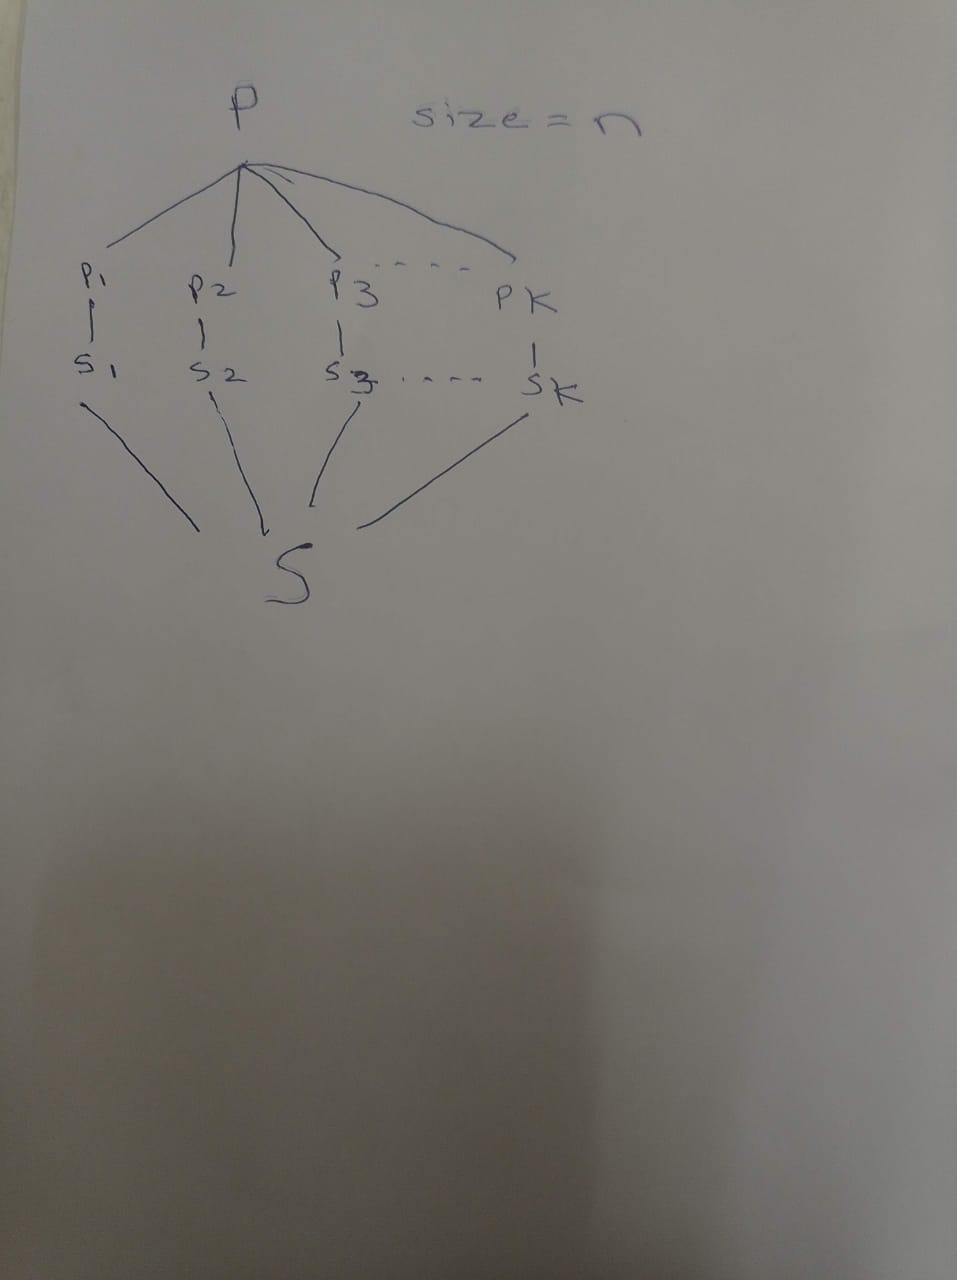 P size = n
P1 P2 P3 - - - - PK
S1 S2 S3 - - - - SK
S